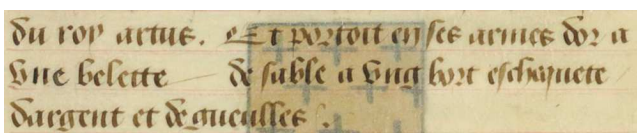 du roy artus. Et portoit en ses armes dor a
vne belette de sable a vng bort eschequete
dargent et de gueulles.